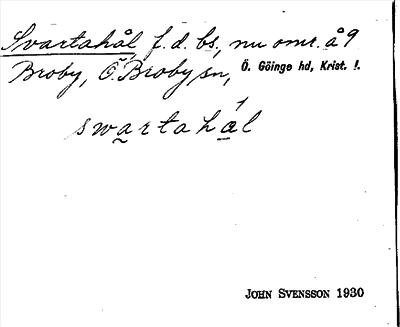 Svartahål f.d. bs, nu omr. å 9
Broby, Ö. Broby sn, Ö. Göinge hd, Krist. l.
swartahál
JOHN SVENSSON 1930